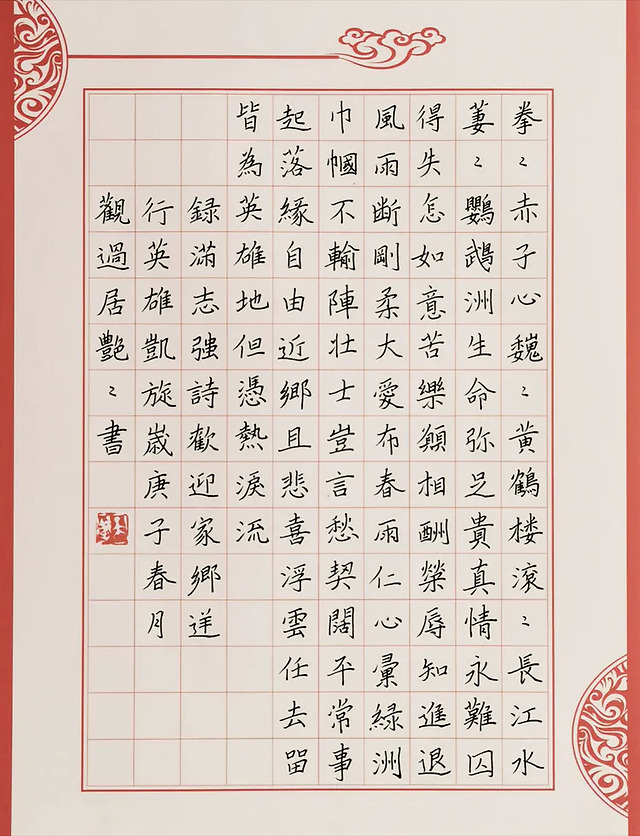 拳〻赤子心巍〻黃鶴楼滾〻長江水
萋〻鸚鵡洲生命弥足貴真情永難囚
得失怎如意苦樂願相酬榮辱知進退
風雨斷剛柔大愛布春雨仁心彙綠洲
巾幗不輸陣壯士豈言愁契闊平常事
起落緣自由近鄉且悲喜浮雲任去留
皆為英雄地但憑熱淚流
録滿志強詩歡迎家鄉送
行英雄凱旋歲庚子春月
觀過居艷〻書